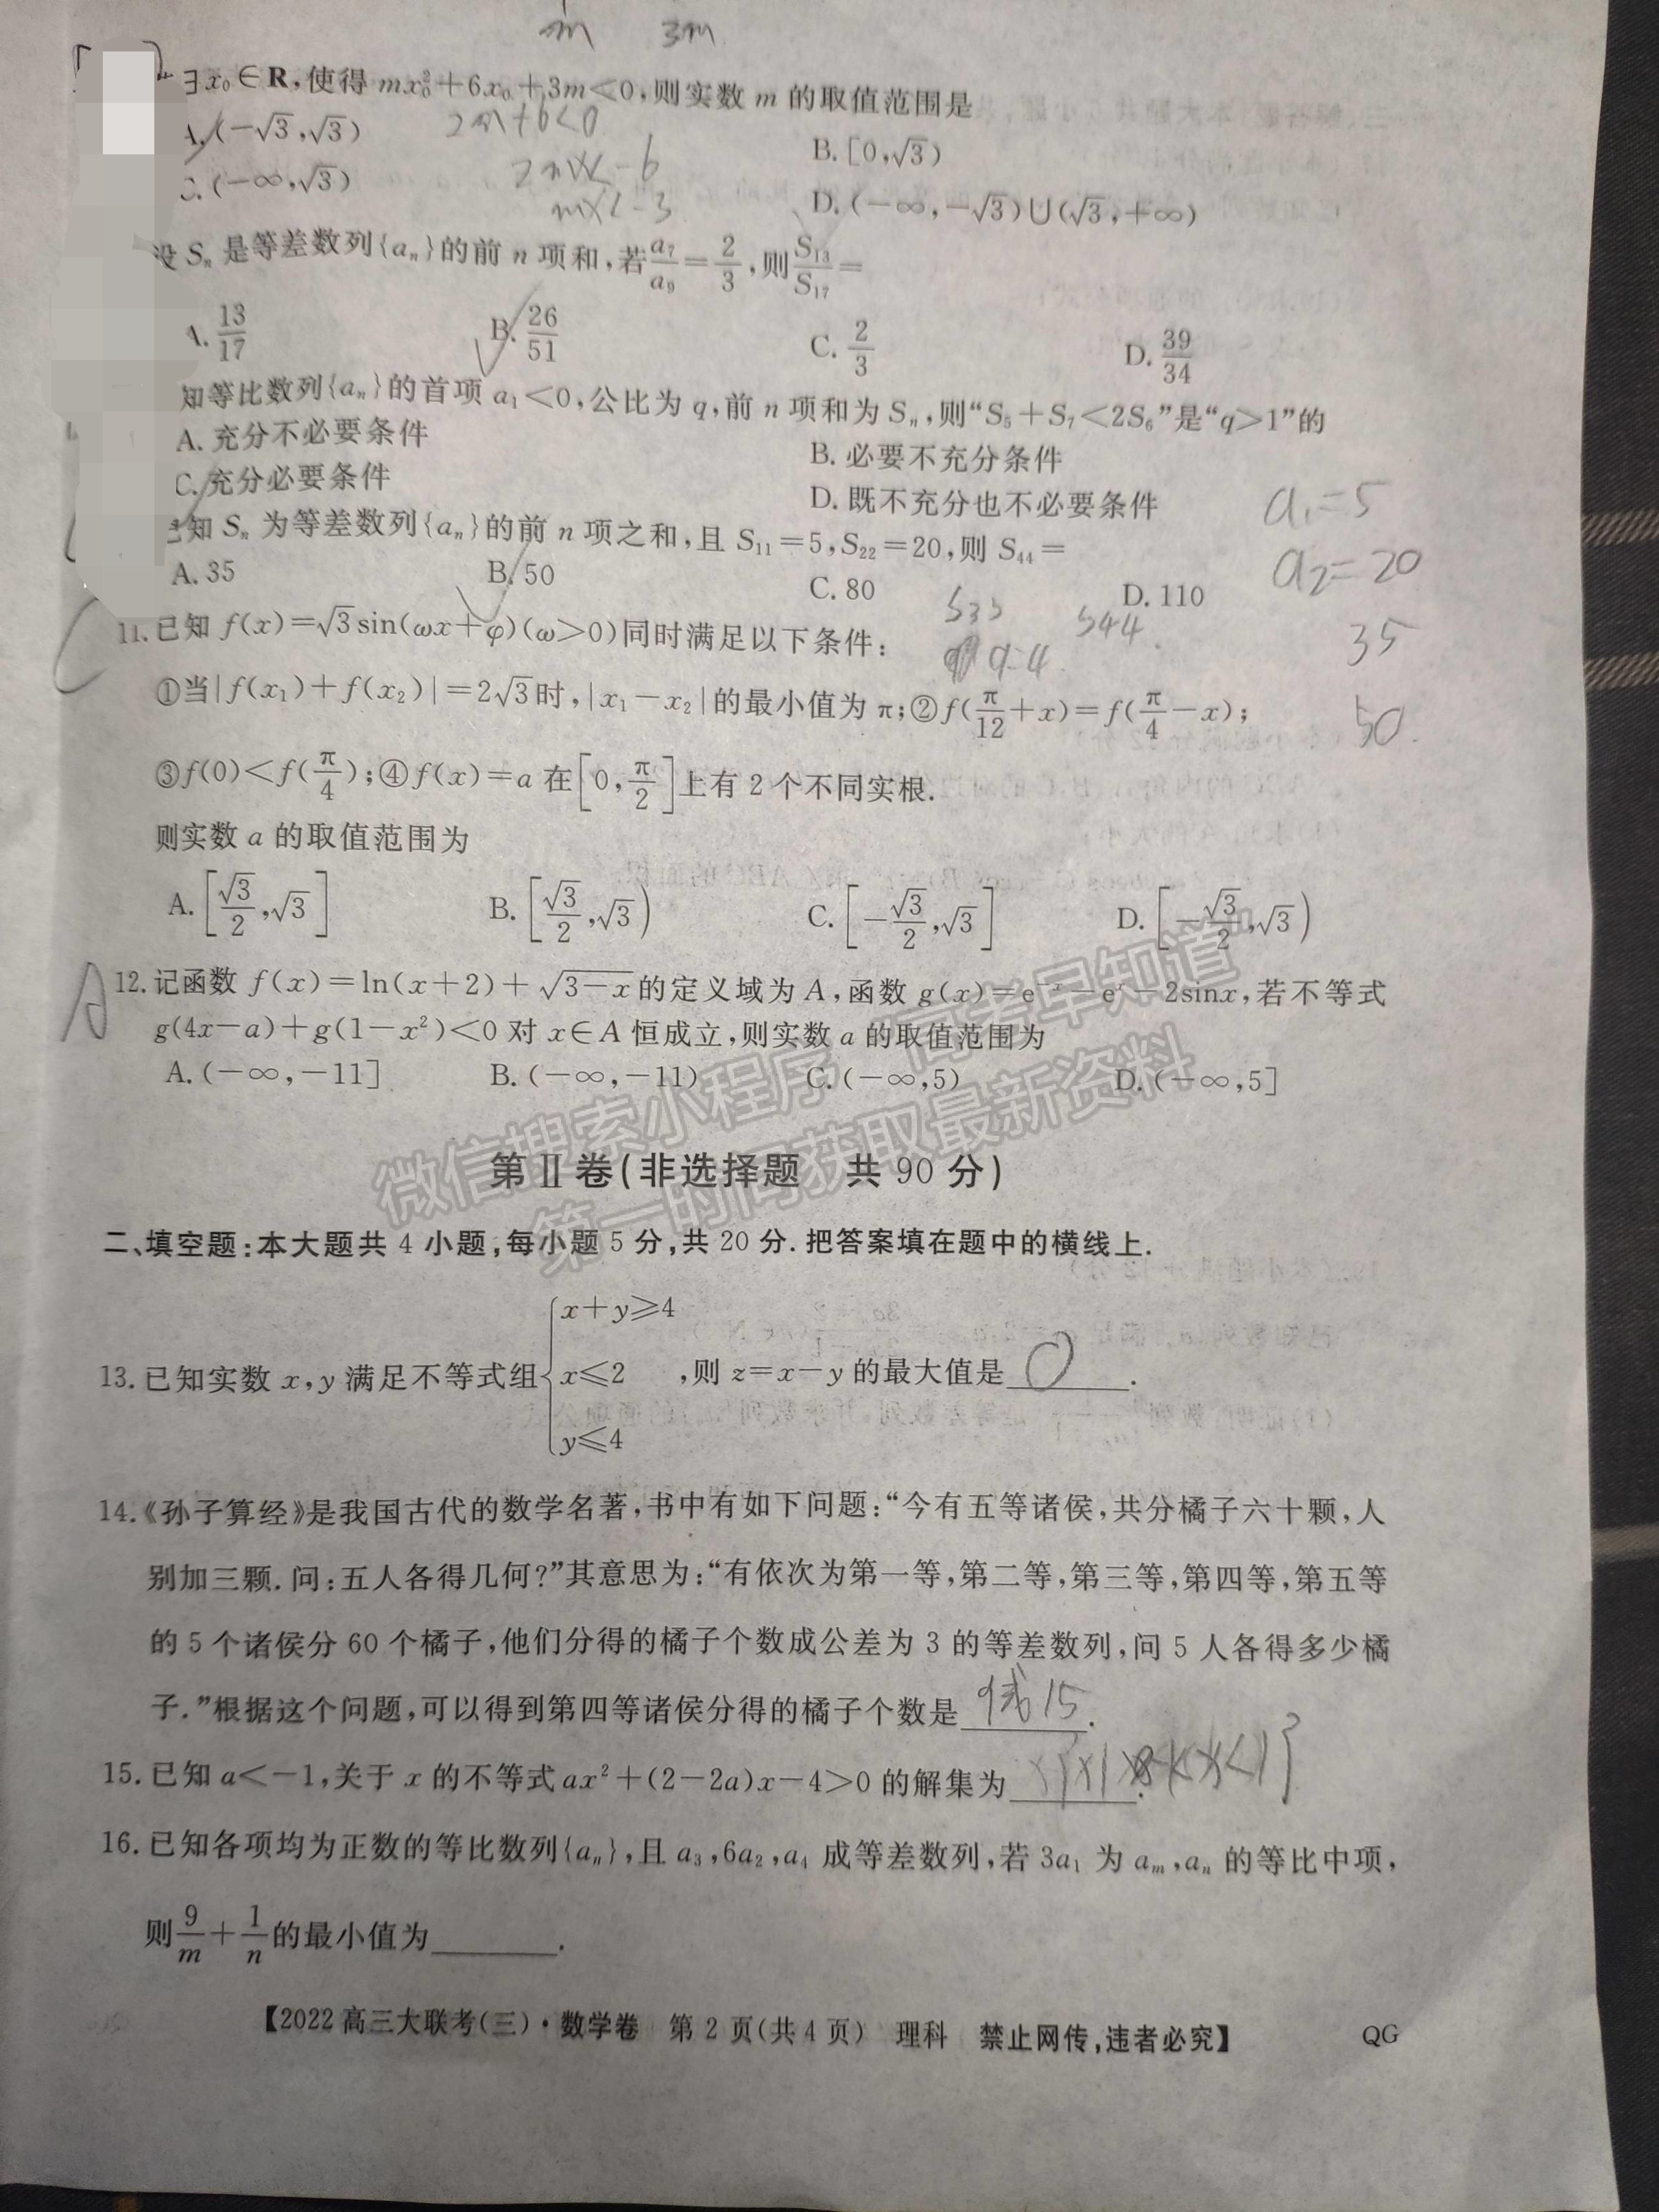 m 3m
∃x₀∈R,使得 mx₀²+6x₀+3m<0,则实数 m 的取值范围是
A.(-√3,√3)
2m+6<0
B.[0,√3)
C.(-∞,√3)
D.(-∞,-√3)∪(√3,+∞)
设 Sₙ 是等差数列{aₙ}的前 n 项和,若a₇/a₉=2/3,则S₁₃/S₁₇=
A. 13/17 B. 26/51 C. 2/3 D. 39/34
知等比数列{aₙ}的首项 a₁<0,公比为 q,前 n 项和为 Sₙ,则“S₅+S₇<2S₆”是“q>1”的
A. 充分不必要条件 B. 必要不充分条件
C. 充分必要条件 D. 既不充分也不必要条件
a₁=5
已知 Sₙ 为等差数列{aₙ}的前 n 项之和,且 S₁₁=5,S₂₂=20,则 S₄₄=
a₂=20
A. 35 B. 50 C. 80 D. 110
S33 S44
35
11. 已知 f(x)=√3sin(ωx+φ)(ω>0)同时满足以下条件:
①当|f(x₁)+f(x₂)|=2√3时,|x₁-x₂|的最小值为 π;②f(π/12+x)=f(π/4-x);
50
③f(0)<f(π/4);④f(x)=a 在[0,π/2]上有 2 个不同实根.
则实数 a 的取值范围为
A.[√3/2,√3] B.[√3/2,√3) C.[-√3/2,√3] D.[-√3/2,√3)
A
12. 记函数 f(x)=ln(x+2)+√(3-x)的定义域为 A,函数 g(x)=e⁻ˣ-eˣ-2sinx,若不等式
g(4x-a)+g(1-x²)<0 对 x∈A 恒成立,则实数 a 的取值范围为
A.(-∞,-11] B.(-∞,-11) C.(-∞,5) D.(-∞,5]
微信搜索小程序“高考早知道”
第一时间获取最新资料
第Ⅱ卷(非选择题 共 90 分)
二、填空题:本大题共 4 小题,每小题 5 分,共 20 分. 把答案填在题中的横线上.
x+y≥4
13. 已知实数 x,y 满足不等式组{x≤2 ,则 z=x-y 的最大值是 0 .
y≤4
14.《孙子算经》是我国古代的数学名著,书中有如下问题:“今有五等诸侯,共分橘子六十颗,人
别加三颗. 问:五人各得几何?”其意思为:“有依次为第一等,第二等,第三等,第四等,第五等
的 5 个诸侯分 60 个橘子,他们分得的橘子个数成公差为 3 的等差数列,问 5 人各得多少橘
子.”根据这个问题,可以得到第四等诸侯分得的橘子个数是 9或15 .
15. 已知 a<-1,关于 x 的不等式 ax²+(2-2a)x-4>0 的解集为 .
16. 已知各项均为正数的等比数列{aₙ},且 a₃,6a₂,a₄ 成等差数列,若 3a₁ 为 aₘ,aₙ 的等比中项,
则9/m+1/n的最小值为 .
【2022 高三大联考(三)·数学卷 第 2 页(共 4 页) 理科 禁止网传,违者必究】 QG